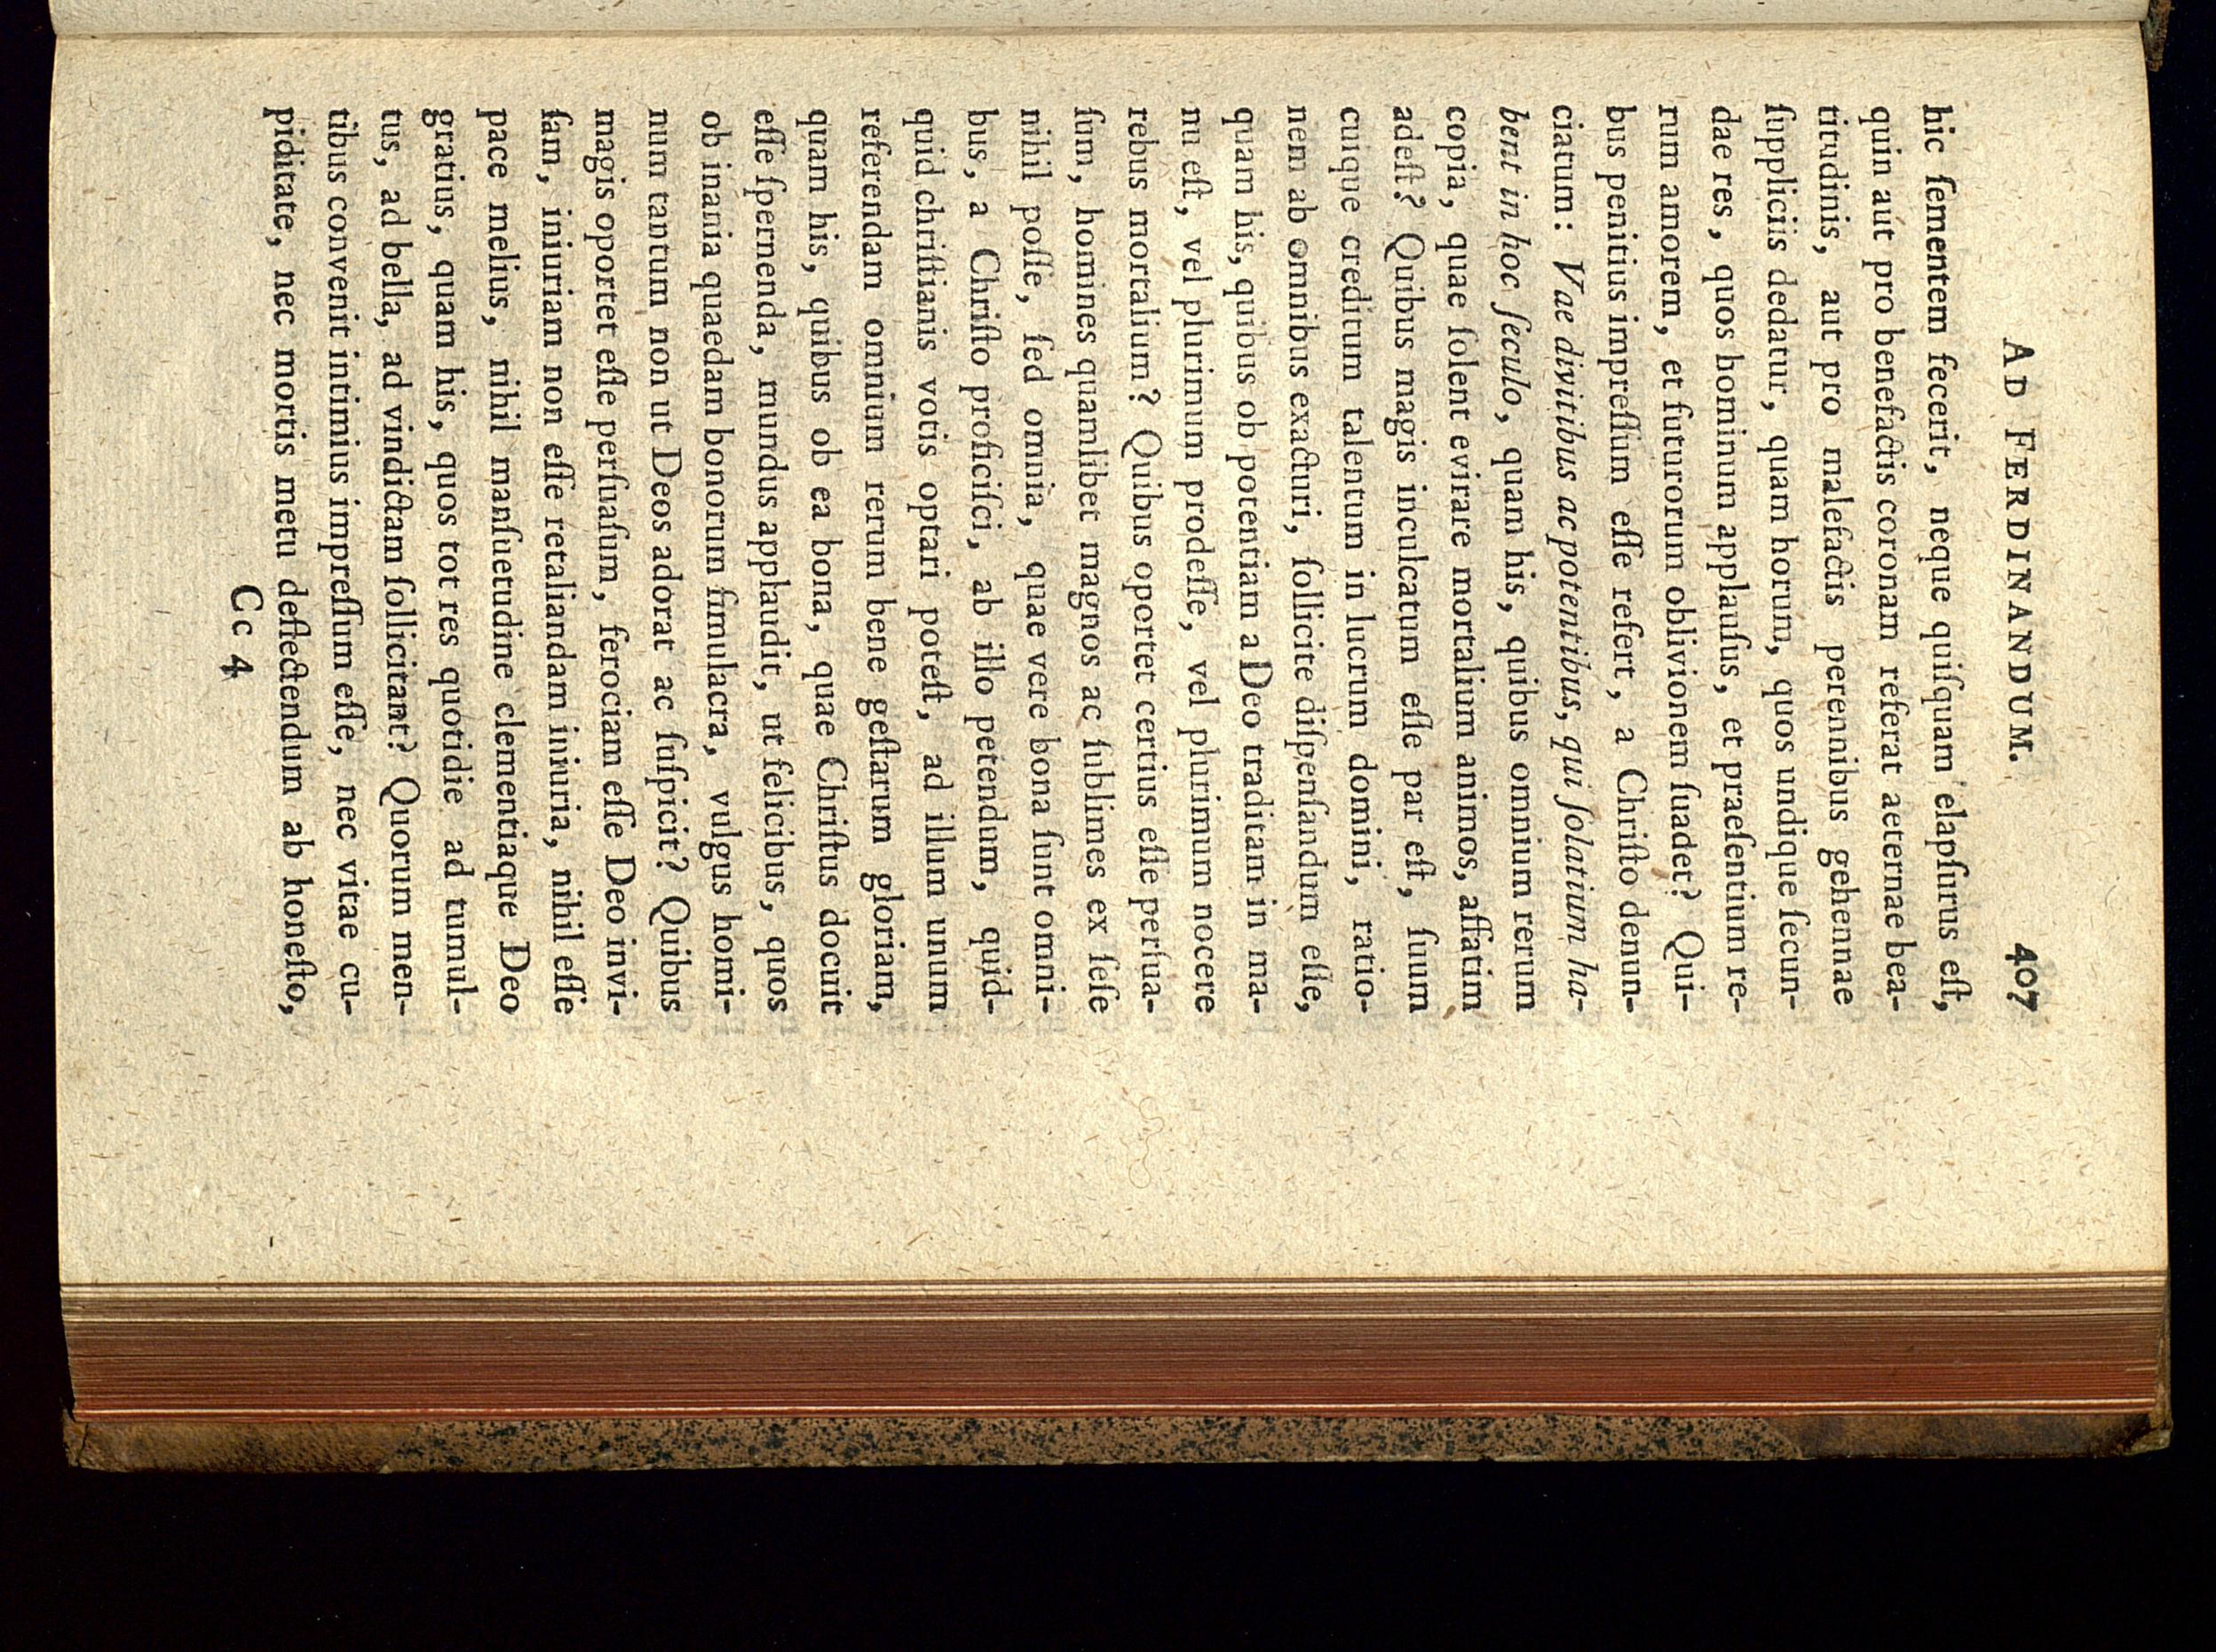 AD FERDINANDUM. 407
hic ſementem fecerit, neque quiſquam elapſurus eſt,
quin aut pro benefactis coronam referat aeternae bea-
titudinis, aut pro malefactis perennibus gehennae
ſuppliciis dedatur, quam horum, quos undique ſecun-
dae res, quos hominum applauſus, et praeſentium re-
rum amorem, et futurorum oblivionem ſuadet? Qui-
bus penitius impreſſum eſſe refert, a Chriſto denun-
ciatum: Vae divitibus ac potentibus, qui ſolatium ha-
bent in hoc ſeculo, quam his, quibus omnium rerum
copia, quae ſolent evirare mortalium animos, affatim
adeſt? Quibus magis inculcatum eſſe par eſt, ſuum
cuique creditum talentum in lucrum domini, ratio-
nem ab omnibus exacturi, ſollicite diſpenſandum eſſe,
quam his, quibus ob potentiam a Deo traditam in ma-
nu eſt, vel plurimum prodeſſe, vel plurimum nocere
rebus mortalium? Quibus oportet certius eſſe perſua-
ſum, homines quamlibet magnos ac ſublimes ex ſeſe
nihil poſſe, ſed omnia, quae vere bona ſunt omni-
bus, a Chriſto proficiſci, ab illo petendum, quid-
quid chriſtianis votis optari poteſt, ad illum unum
referendam omnium rerum bene geſtarum gloriam,
quam his, quibus ob ea bona, quae Chriſtus docuit
eſſe ſpernenda, mundus applaudit, ut felicibus, quos
ob inania quaedam bonorum ſimulacra, vulgus homi-
num tantum non ut Deos adorat ac ſuſpicit? Quibus
magis oportet eſſe perſuaſum, ferociam eſſe Deo invi-
ſam, iniuriam non eſſe retaliandam iniuria, nihil eſſe
pace melius, nihil manſuetudine clementiaque Deo
gratius, quam his, quos tot res quotidie ad tumul-
tus, ad bella, ad vindictam ſollicitant? Quorum men-
tibus convenit intimius impreſſum eſſe, nec vitae cu-
piditate, nec mortis metu deflectendum ab honeſto,
Cc 4